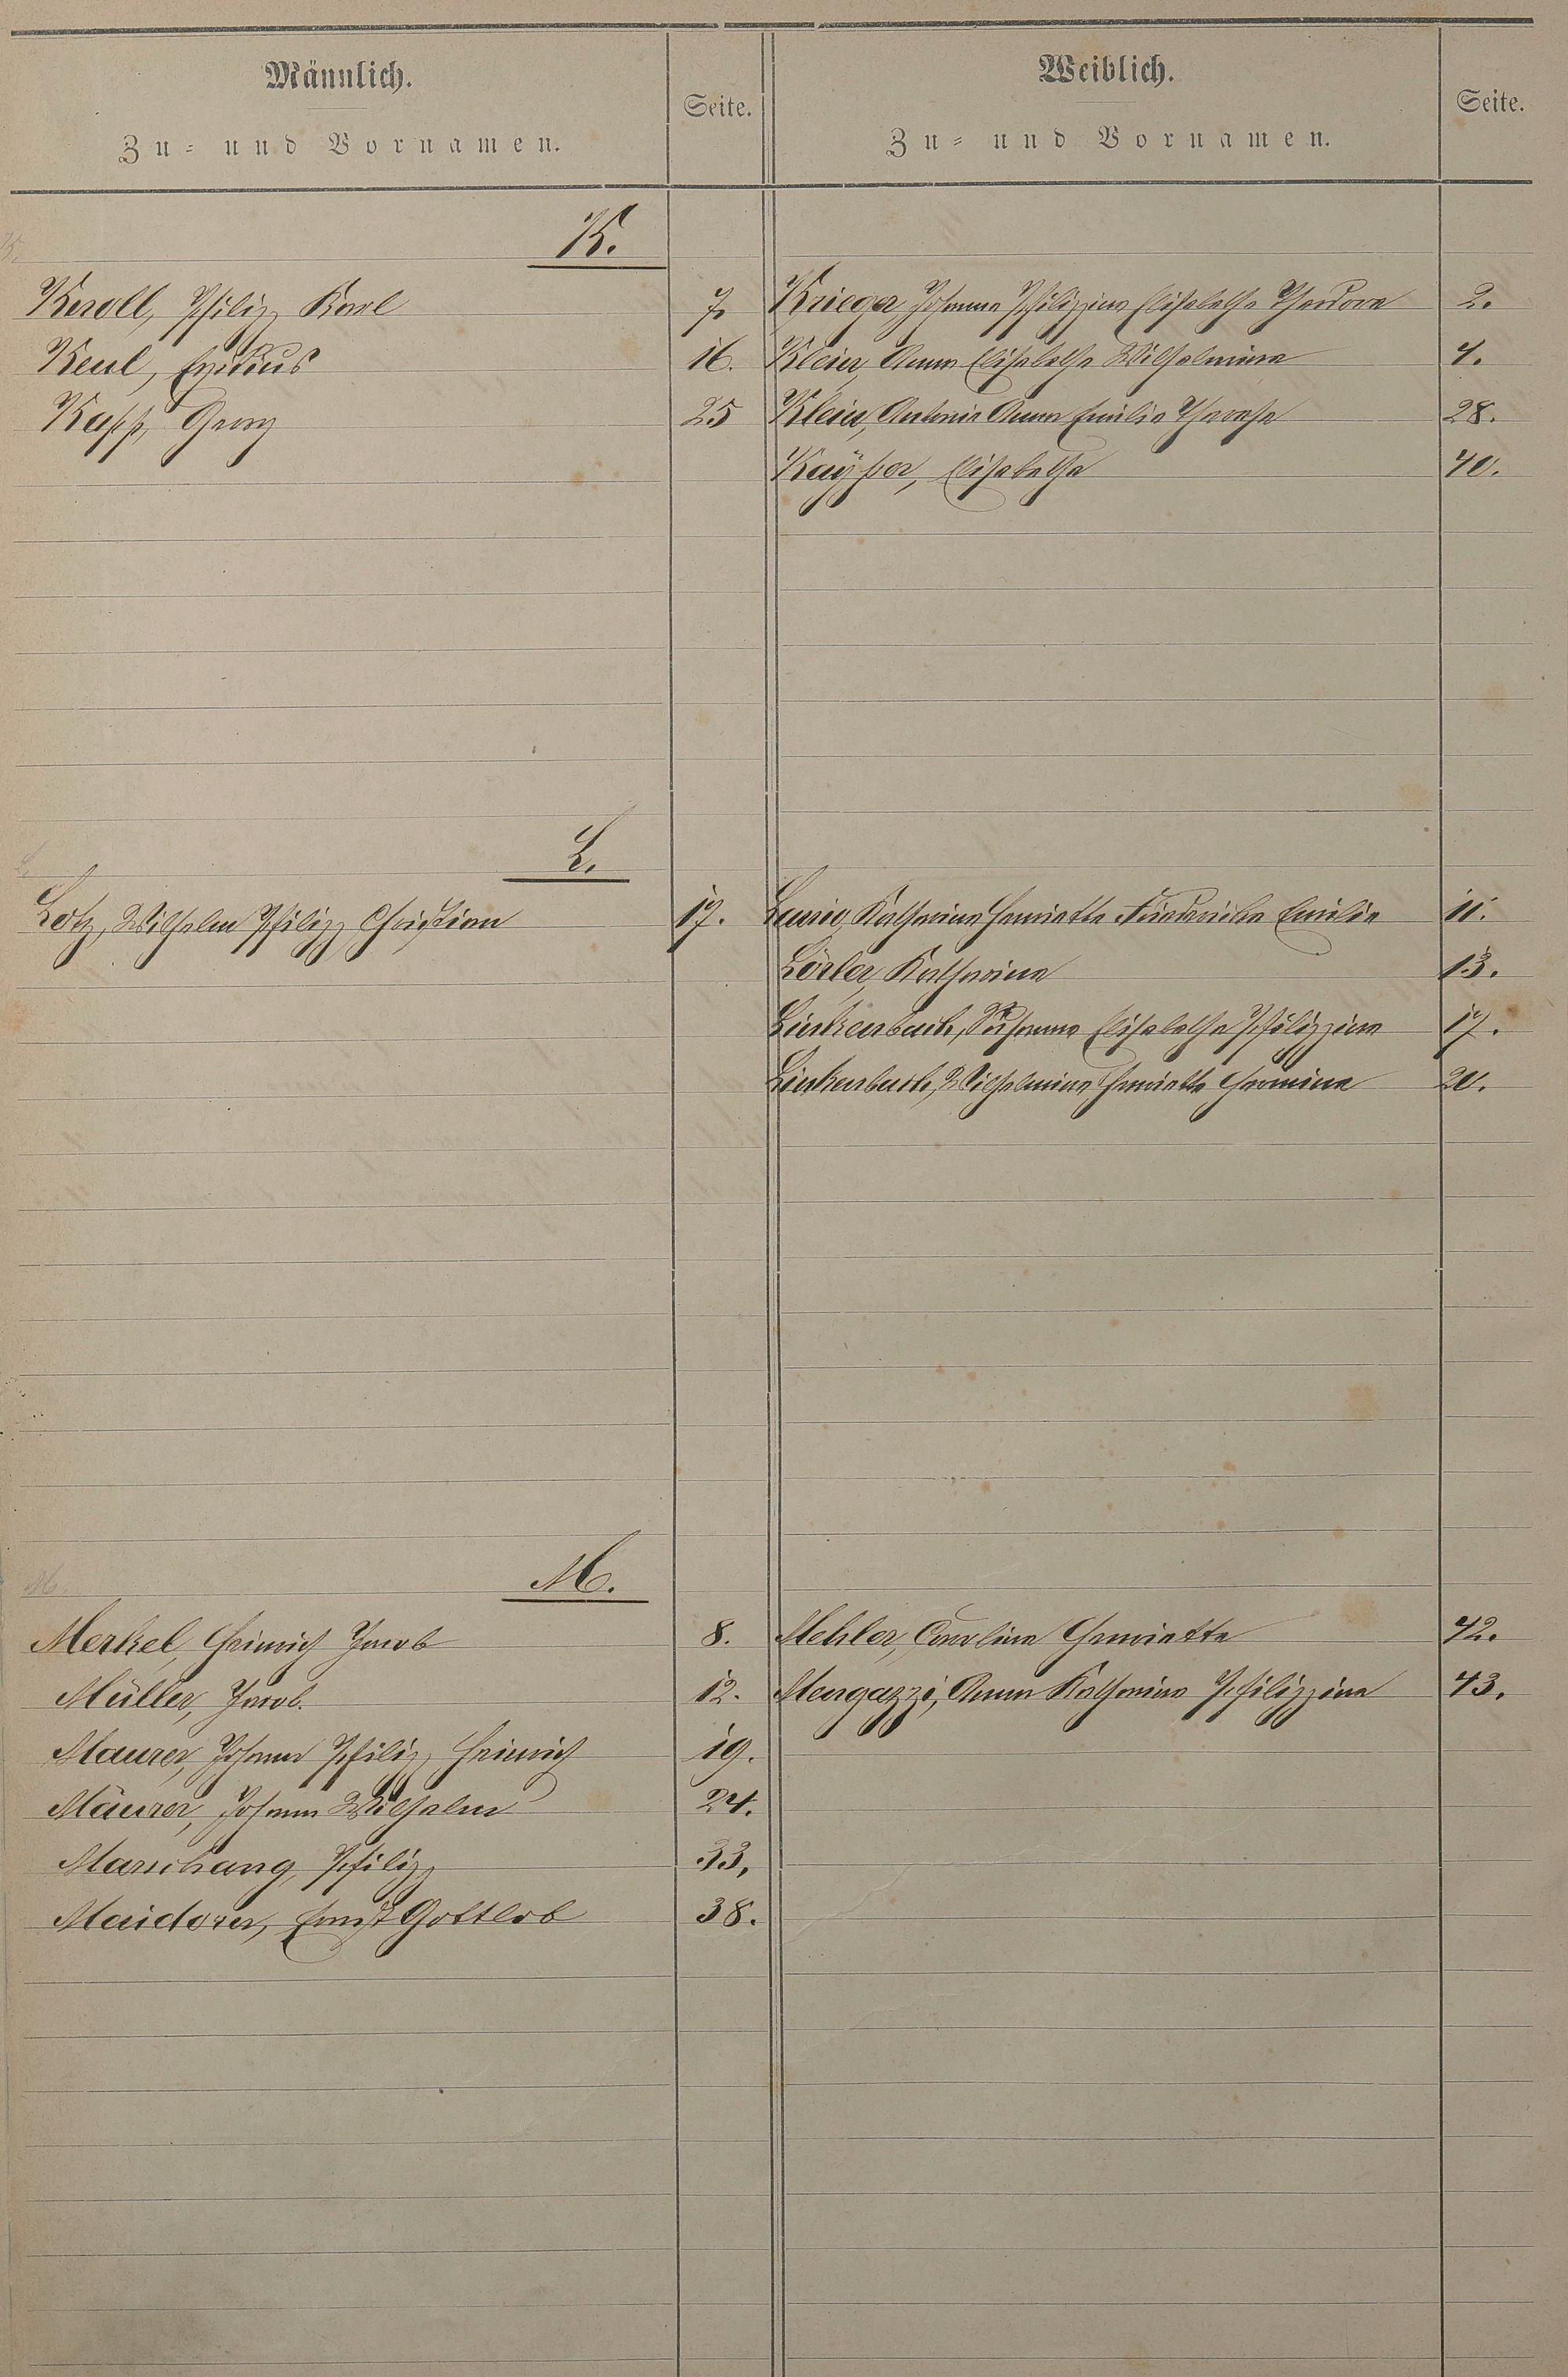 Männlich.
Zu- und Vornamen.
Seite.
Weiblich.
Zu- und Vornamen.
Seite.
K.
Keroll, Philipp Karl 7.
Krieger Johanna Philippina Elisabetha Theodora 2.
Keul, Egidius 16.
Klein, Anna Elisabetha Wilhelmina 4.
Kapp, Georg 25
Klein, Antonie Anna Emilie Therese 28.
Kaÿser, Elisabetha 40.
L.
Lotz, Wilhelm Philipp Christian 17.
Katharina Henriette Friedericke Emilie 11.
Lörler, Katharina 13.
Linkenbach, Susanna Elisabetha Philippina 17.
Linkenbach, Wilhelmine Henriette Hermine 20.
M.
Merkel, Heinrich Jacob 8.
Mehler, Carolina Henriette 42.
Müller, Jacob. 12.
Mengazzi, Anna Katharina Philippina 43.
Maurer, Johann Philipp Heinrich 19.
Mäurer, Johann Wilhelm 24.
Marschang, Philipp 33,
Maidorn, Ernst Gottlob 38.